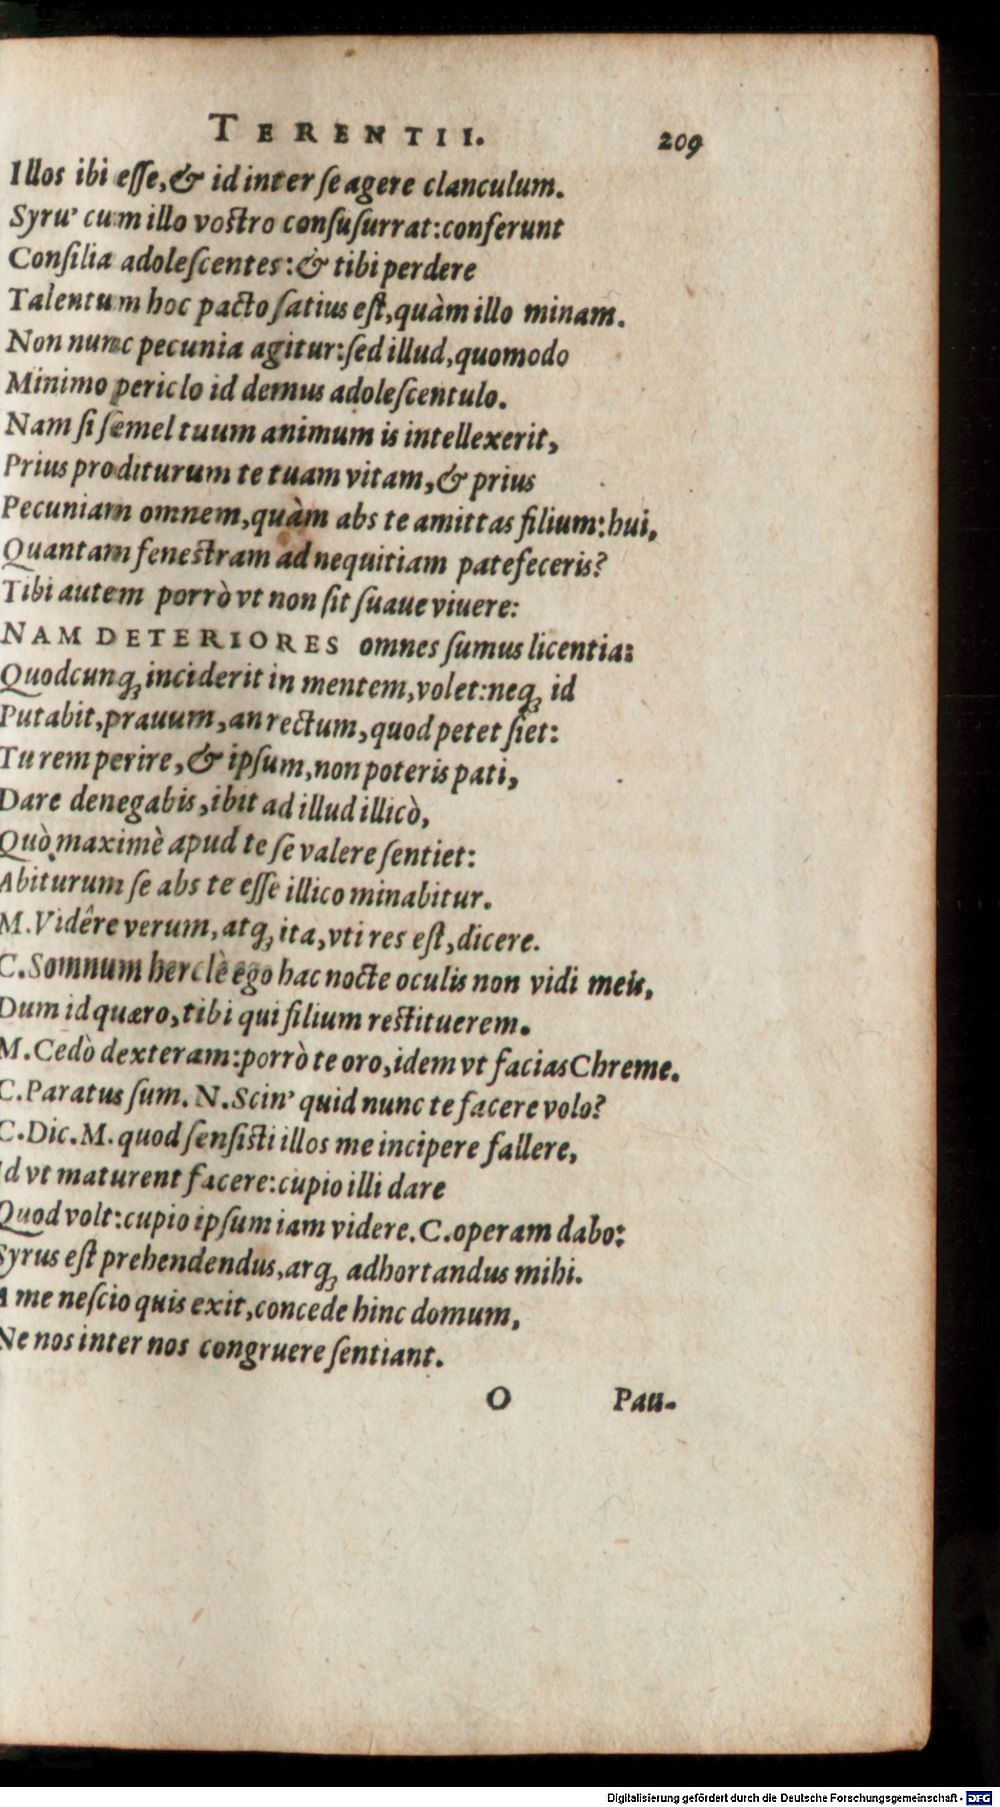 TERENTII. 209
Illos ibi esse, & id inter se agere clanculum.
Syru' cum illo vostro consusurrat: conferunt
Consilia adolescentes: & tibi perdere
Talentum hoc pacto satius est, quàm illo minam.
Non nunc pecunia agitur: sed illud, quomodo
Minimo periclo id demus adolescentulo.
Nam si semel tuum animum is intellexerit,
Prius proditurum te tuam vitam, & prius
Pecuniam omnem, quàm abs te amittas filium: hui,
Quantam fenestram ad nequitiam patefeceris?
Tibi autem porrò vt non sit suaue viuere:
NAM DETERIORES omnes sumus licentia:
Quodcunq; inciderit in mentem, volet: neq; id
Putabit, prauum, an rectum, quod petet siet:
Tu rem perire, & ipsum, non poteris pati,
Dare denegabis, ibit ad illud illicò,
Quò maximè apud te se valere sentiet:
Abiturum se abs te esse illico minabitur.
M. Vidêre verum, atq; ita, vti res est, dicere.
C. Somnum herclè ego hac nocte oculis non vidi meis,
Dum id quæro, tibi qui filium restituerem.
M. Cedò dexteram: porrò te oro, idem vt facias Chreme.
C. Paratus sum. N. Scin' quid nunc te facere volo?
C. Dic. M. quod sensisti illos me incipere fallere,
Id vt maturent facere: cupio illi dare
Quod volt: cupio ipsum iam videre. C. operam dabo:
Syrus est prehendendus, arq; adhortandus mihi.
A me nescio quis exit, concede hinc domum,
Ne nos inter nos congruere sentiant.
O Pau-
Digitalisierung gefördert durch die Deutsche Forschungsgemeinschaft - DFG